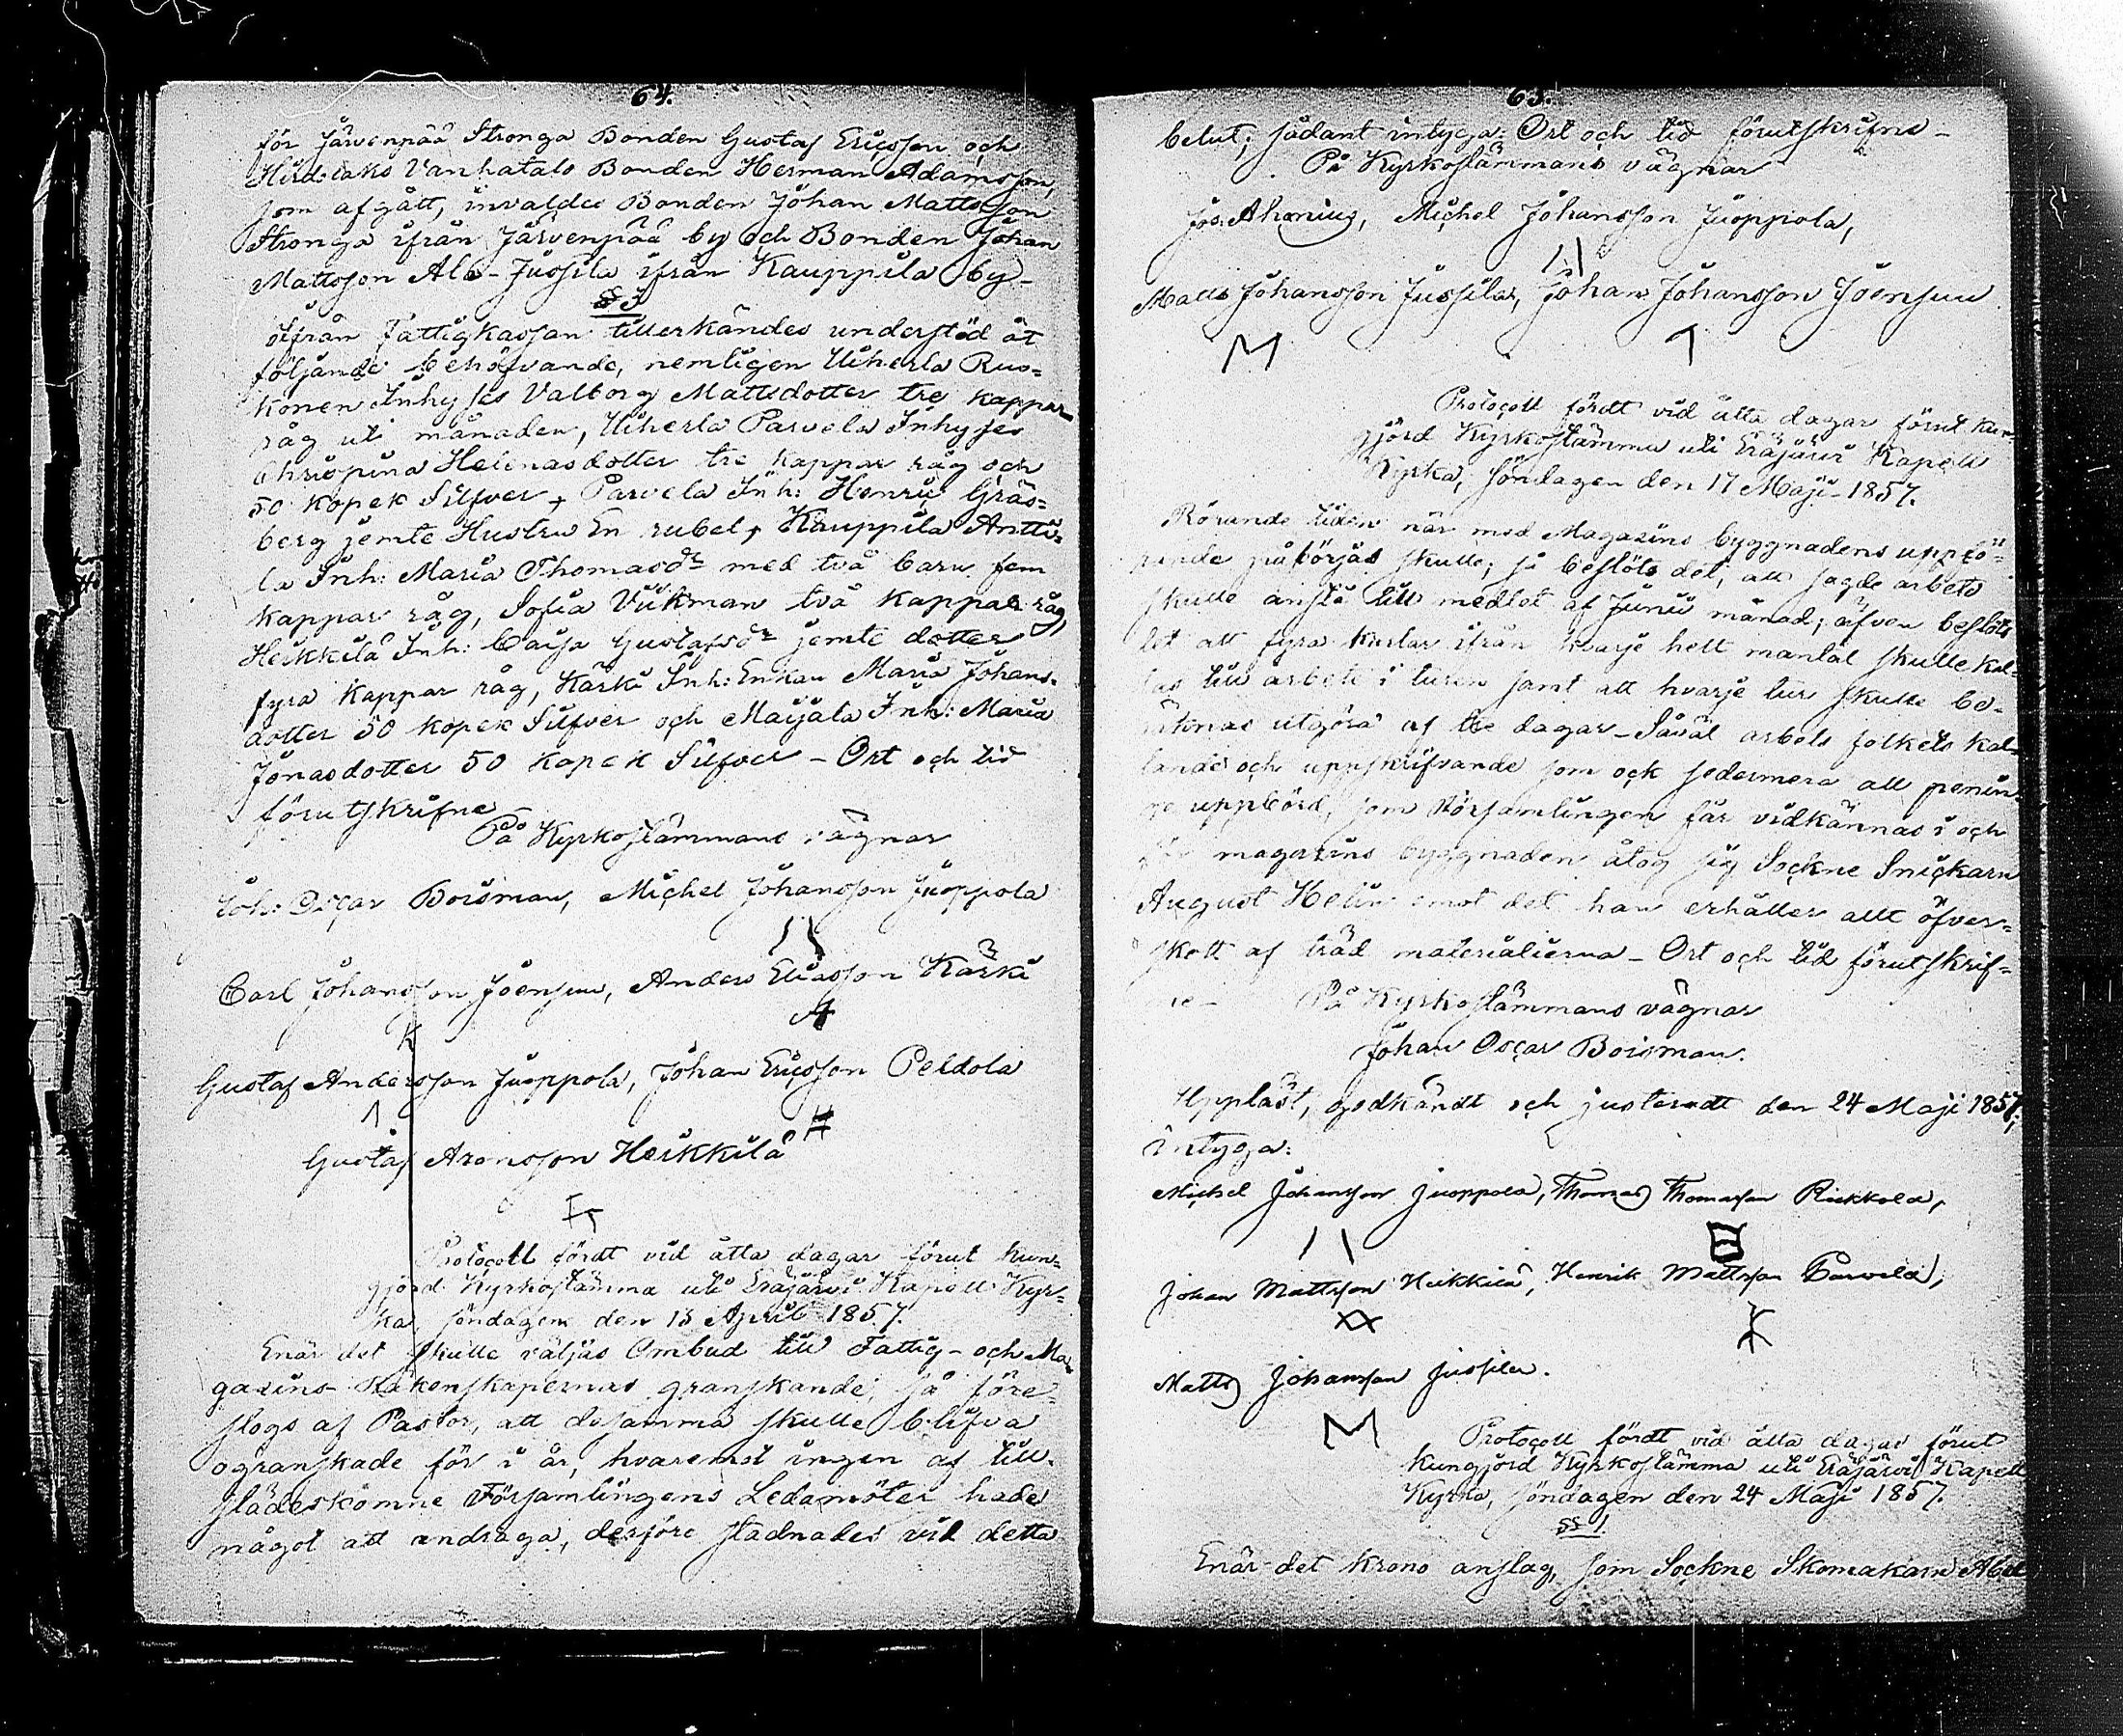 64.
för Järvenpää Stronga Bonden Gustaf Ericsson och
Vanhatalo Bonden Herman Adamsson,
som afgått, invaldes Bonden Johan Mattsson
Stronga ifrån Järvenpää by och Bonden Johan
Mattsson Ala-Jussila ifrån Kauppila by-
§ 3
Ifrån Fattigkassan tillerkändes understöd åt
följande behöfvande, nemligen Uiherla Rus=
konen Inhyses Valborg Mattsdotter tre kappar
råg uti månaden, Uiherla Parvela Inhyses
Chrispina Helenasdotter tre kappar råg och
50 kopek Silfver, Parvela Inh: Henric Gräs=
berg jemte Hustru En rubel, Kauppila Antti=
la Inh: Maria Thomasdr med två barn fem
kappar råg, Sofia Vikman två kappar råg,
Heikkilä Inh: Caisa Gustafsdr jemte dotter
fyra kappar råg, Kärki Inh: Enkan Maria Johans=
dotter 50 kopek Silfver och Maijala Inh: Maria
Jonasdotter 50 kopek Silfver - Ort och tid
förutskrifne
På Kyrkostämmans vägnar
Joh: Oscar Boisman, Michel Johansson Juoppola
Carl Johansson Joensuu, Anders Eliasson Kärki
Gustaf Andersson Juoppola, Johan Ericsson Peldola
Gustaf Aronsson Heikkilä
Protocoll fördt vid åtta dagar förut kun=
gjord Kyrkostämma uti Eräjärvi Kapell Kyr=
ka, söndagen den 13 April 1857.
Enär det skulle väljas Ombud till Fattig- och Ma=
gasins Räkenskapernas granskande, så före=
slogs af Pastor, att desamma skulle blifva
ogranskade för i år, hvaremot ingen af till=
städeskomne Församlingens Ledamöter hade
något att andraga, derföre stadnades vid detta
65.
belut; sådant intyga: Ort och tid förutskrifne-
På Kyrkostämmans vägnar
Jos: Ahonius, Michel Johansson Juoppola,
Matts Johansson Jussila, Johan Johansson Joensuu
Protocoll fördt vid åtta dagar förut kun=
gjord Kyrkostämma uti Eräjärvi Kapell
Kyrka, söndagen den 17 Maji 1857.
Rörande tiden när med Magasins byggnadens uppfö=
rande påbörjas skulle; så beslöts det, att sagde arbete
skulle anstå till medlet af Junii månad; äfven beslöts
det att fyra karlar ifrån hvarje helt mantal skulle kal=
las till arbete i turen samt att hvarje tur skulle be=
räknas utgöra af tre dagar - Såväl arbets folkets kal=
lande och uppskrifvande som ock sedermera all penin=
ge uppbörd, som Församlingen får vidkännas i och
för magasins byggnaden åtog sig Sockne Snickarn
August Helin emot det han erhåller allt öfver=
skott af träd materialierna - Ort och tid förutskrif=
ne - På Kyrkostämmans vägnar
Johan Oscar Boisman.
Uppläst, godkändt och justeradt den 24 Maji 1857,
intyga:
Michel Johansson Juoppola, Thomas Thomasson Riekkola,
Johan Mattsson Heikkilä, Henrik Mattsson Parvela,
Matts Johansson Jussila.
Protocoll fördt vid åtta dagar förut
kungjord Kyrkostämma uti Eräjärvi Kapell
Kyrka, söndagen den 24 Maji 1857.
§ 1.
Enär det krono anslag, som Sockne Skomakarn Abel